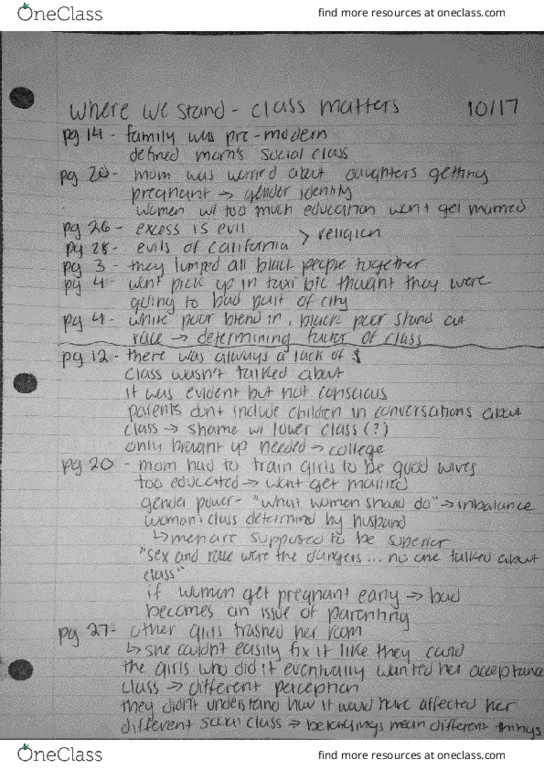 OneClass
find more resources at oneclass.com
where we stand - class matters 10/17
pg 14 - family was pre-modern
defined mom's social class
pg 20 - mom was worried about daughters getting
pregnant → gender identity
women w/ too much education won't get married
pg 26 - excess is evil
> religion
pg 28 - evils of california
pg 3 - they lumped all black people together
pg 4 - won't pick up in taxi b/c thought they were
going to bad part of city
pg 4 - white poor blend in, black poor stand out
race → determining factor of class
pg 12 - there was always a lack of $
class wasn't talked about
it was evident but not conscious
parents don't include children in conversations about
class → shame w/ lower class (?)
only brought up needed → college
pg 20 - mom had to train girls to be good wives
too educated → won't get married
gender power - "what women should do" → inbalance
woman's class determined by husband
↳ men are supposed to be superior
"sex and race were the dangers ... no one talked about
class"
if women get pregnant early → bad
becomes an issue of parenting
pg 27 - other girls trashed her room
↳ she couldn't easily fix it like they could
the girls who did it eventually wanted her acceptance
class → different perception
they didn't understand how it would have affected her
different social class → belongings mean different things
OneClass
find more resources at oneclass.com